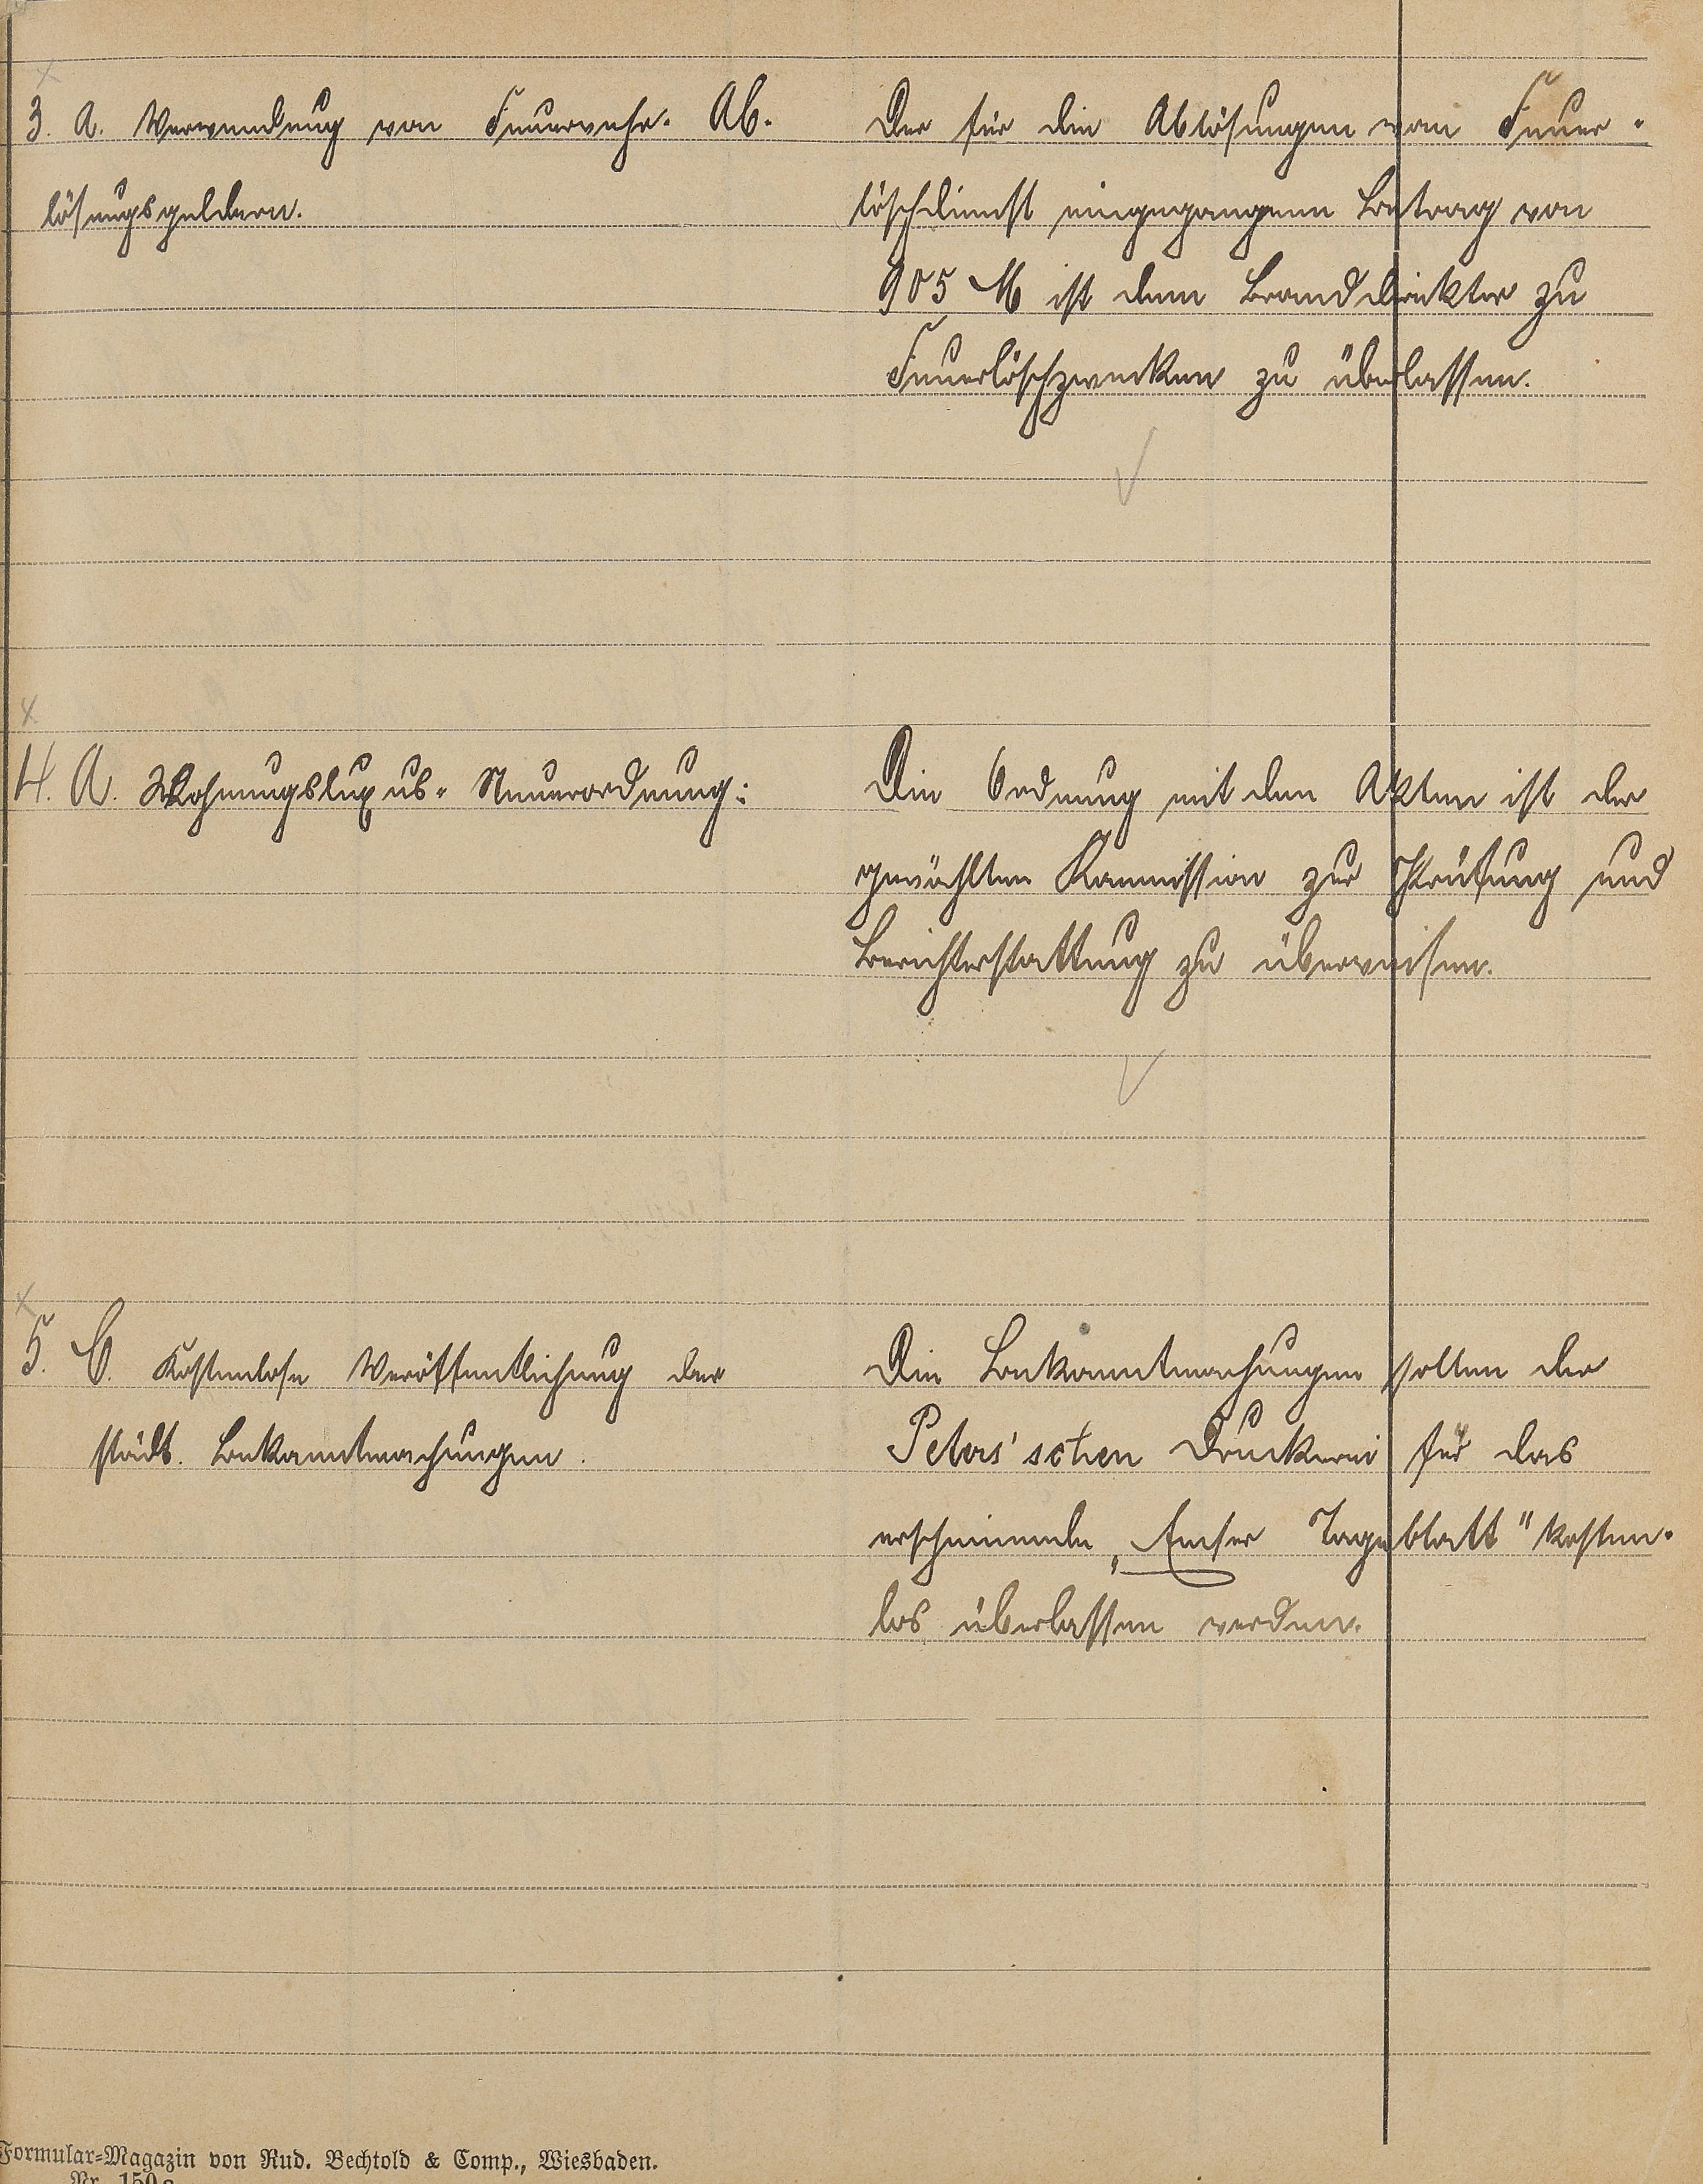 3. A. Verwendung von Feuerwehr-Ab-
lösungsgeldern.
Der für die Ablösungen vom Feuer-
löschdienst eingegangene Betrag von
905 M ist dem Branddirektor zu
Feuerlöschzwecken zu überlassen.
4. A. Wohnungsluxus-Steuerordnung:
Die Ordnung mit den Akten ist der
gewählten Kommission zur Prüfung und
Berichterstattung zu überweisen.
5. C. Kostenlose Veröffentlichung der
städt. Bekanntmachungen.
Die Bekanntmachungen sollen der
Peters'schen Druckerei für das
erscheinende „Emser Tageblatt" kosten-
los überlassen werden.
Formular-Magazin von Rud. Bechtold & Comp., Wiesbaden.
Nr. 150